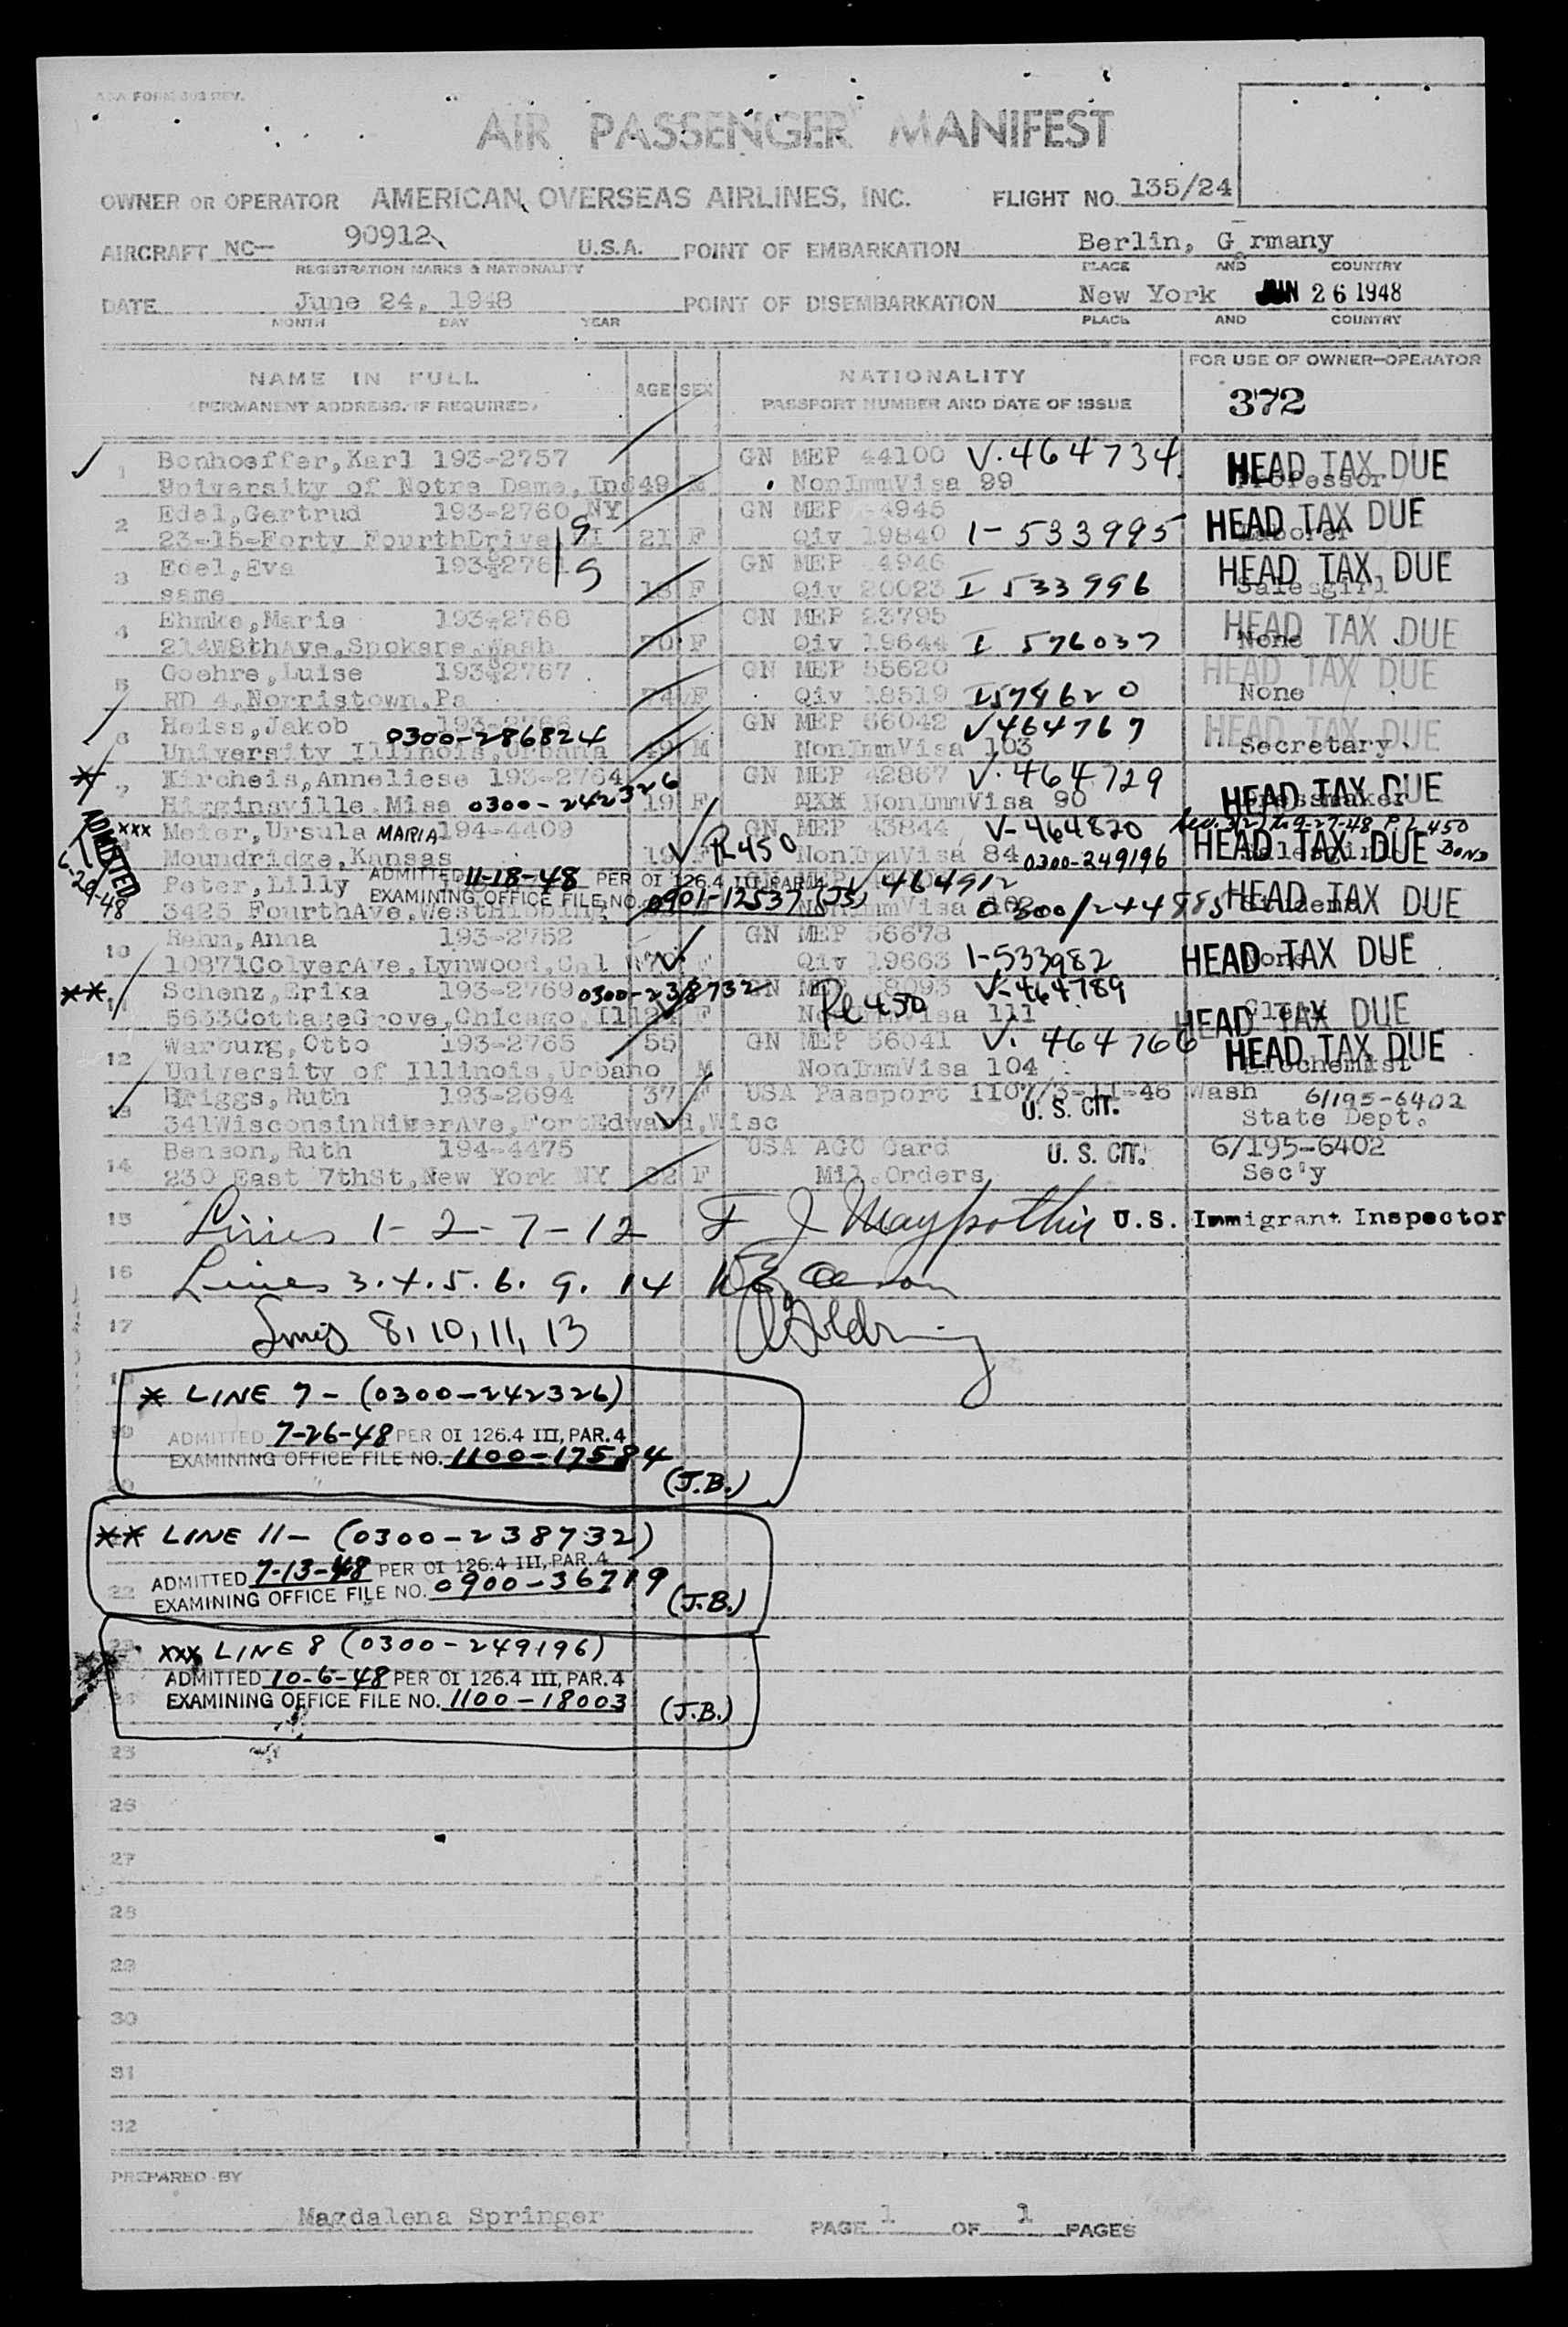 AOA FORM 303 REV.
AIR PASSENGER MANIFEST
OWNER OR OPERATOR AMERICAN OVERSEAS AIRLINES, INC. FLIGHT NO. 135/24
AIRCRAFT NC- 90912 U.S.A. POINT OF EMBARKATION Berlin, G rmany
REGISTRATION MARKS & NATIONALITY PLACE AND COUNTRY
DATE June 24, 1948 POINT OF DISEMBARKATION New York JUN 26 1948
MONTH DAY YEAR PLACE AND COUNTRY
NAME IN FULL AGE SEX NATIONALITY FOR USE OF OWNER-OPERATOR
(PERMANENT ADDRESS, IF REQUIRED) PASSPORT NUMBER AND DATE OF ISSUE 372
1 Bonhoeffer, Karl 193-2757 GN MEP 44100 V.464734 HEAD TAX DUE
University of Notre Dame, Ind 49 M NonImmVisa 99 Professor
2 Edel, Gertrud 193-2760 NY GN MEP 4945 HEAD TAX DUE
23-15-Forty FourthDrive LI 21 F Qiv 19840 I-533995 Laborer
3 Edel, Eva 193-2761 GN MEP 4946 HEAD TAX DUE
same 18 F Qiv 20023 I 533996 Salesgirl
4 Ehmke, Maria 193-2768 GN MEP 23795 HEAD TAX DUE
214W8thAve, Spokare, Wash 70 F Qiv 19644 I 576037 None
5 Goehre, Luise 193-2767 GN MEP 55620 HEAD TAX DUE
RD 4, Norristown, Pa 74 F Qiv 18519 I574620 None
6 Heiss, Jakob 193-2766 0300-286824 GN MEP 56042 V464767 HEAD TAX DUE
University Illinois, Urbana 49 M NonImmVisa 103 Secretary
* 7 Kircheis, Anneliese 193-2764 GN MEP 42867 V.464729 HEAD TAX DUE
Higginsville Miss 0300-242326 19 F NonImmVisa 90 Dressmaker
ADMITTED
6-29-48
xxx Meier, Ursula MARIA 194-4409 GN MEP 43844 V-464820 9-27-48 P.L. 450
Moundridge, Kansas 19 F Re 450 NonImmVisa 84 0300-249196 HEAD TAX DUE Bond
Peter, Lilly ADMITTED 11-18-48 PER OI 126.4 III, PAR. 4 V464912 HEAD TAX DUE
EXAMINING OFFICE FILE NO. 0901-12537 (JS)
3425 FourthAve, WestHibbing NonImmVisa 0300/244885 Student
10 Rehm, Anna 193-2752 GN MEP 56678 HEAD TAX DUE
10871ColyerAve, Lynwood, Cal Qiv 19663 I-533982 None
** 11 Schenz, Erika 193-2769 0300-238732 GN MEP 8093 V-464789 HEAD TAX DUE
5633CottageGrove, Chicago, Ill F Re 450 111 Clerk
12 Warburg, Otto 193-2765 55 GN MEP 56041 V.464766 HEAD TAX DUE
University of Illinois, Urbano M NonImmVisa 104 Biochemist
13 Briggs, Ruth 193-2694 37 F USA Passport 1107/3-11-46 Wash 6/195-6402
341WisconsinRiverAve, FortEdward, Wisc U.S. CIT. State Dept.
14 Benson, Ruth 194-4475 USA AGO Card U.S. CIT. 6/195-6402
230 East 7thSt, New York NY 22 F Mil. Orders Sec'y
15 Lines 1-2-7-12 F J U.S. Immigrant Inspector
16 Lines 3.4.5.6.9.14
17 Lines 8, 10, 11, 13
18 * LINE 7- (0300-242326)
19 ADMITTED 7-26-48 PER OI 126.4 III, PAR. 4
EXAMINING OFFICE FILE NO. 1100-17584
20 (J.B.)
** LINE 11- (0300-238732)
22 ADMITTED 7-13-48 PER OI 126.4 III, PAR. 4
EXAMINING OFFICE FILE NO. 0900-36719 (J.B.)
23 xxx LINE 8 (0300-249196)
ADMITTED 10-6-48 PER OI 126.4 III, PAR. 4
24 EXAMINING OFFICE FILE NO. 1100-18003 (J.B.)
25
26
27
28
29
30
31
32
PREPARED BY
Magdalena Springer PAGE 1 OF 1 PAGES